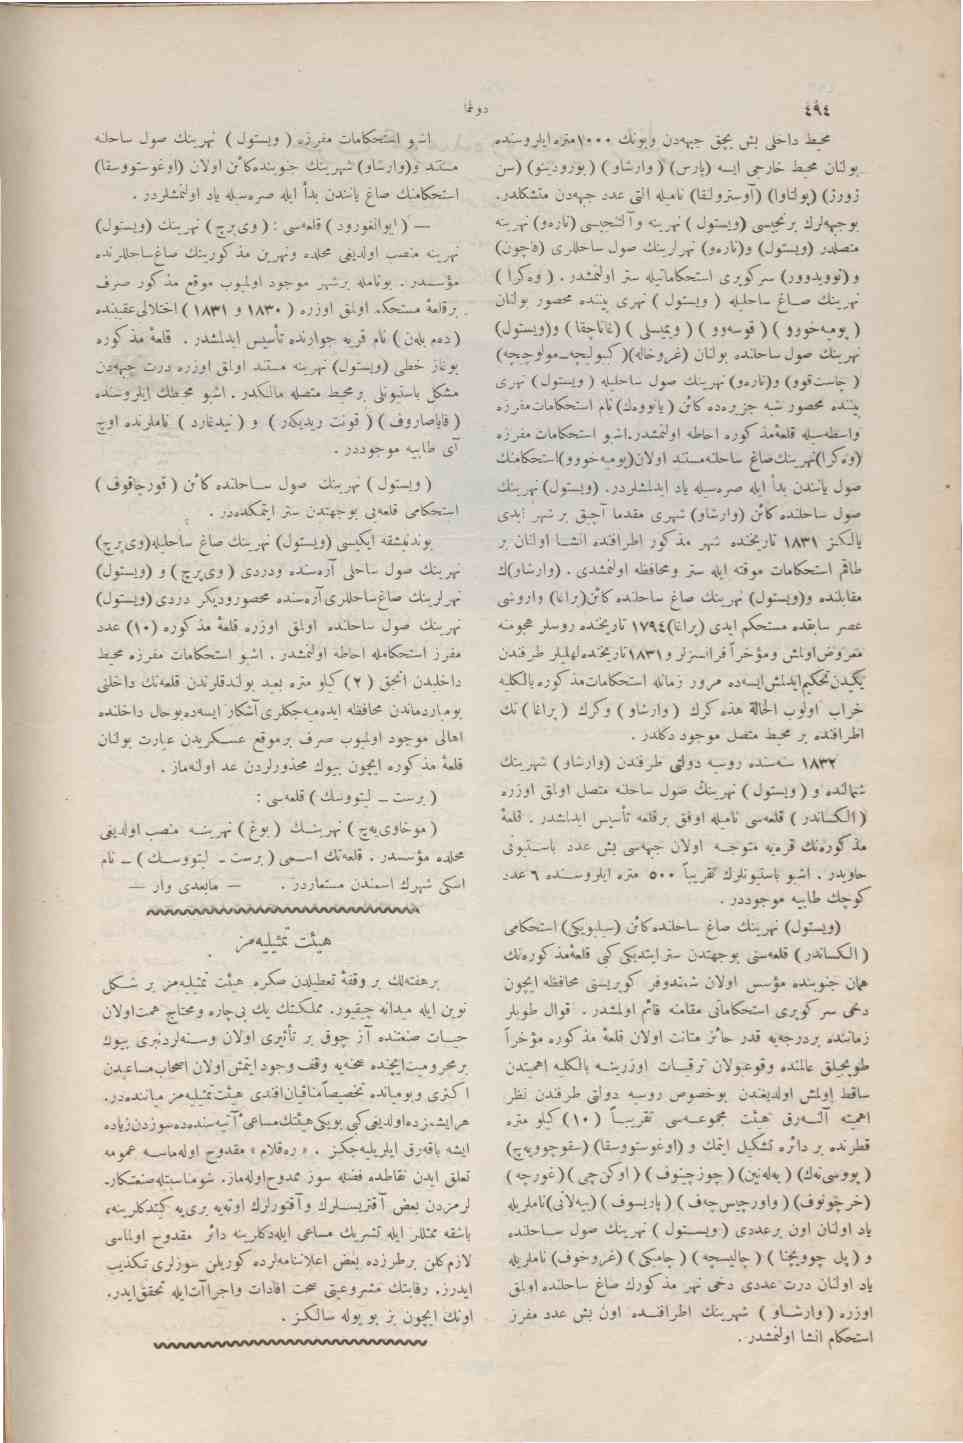 ٤٩٤
دوغما
محيط داخلى بش بچق جبهه‌دن وبونك ١٠٠٠متره ايلروسنده
بولنان محيط خارجى ايسه (پارس) ( وارشاو ) ( بورودينو) (سن
ژورژ) (پولتاوا) (آوسترولنقا) ناميله التى عدد جبهه‌دن متشكلدر.
بوجبهه‌لرك برنجيسى (ويستول ) نهرينه وآلتنجيسى (ناره‌و) نهرينه
متصلدر (ويستول) و(ناره‌و) نهرلرينك صول ساحللرى (قاچون)
و (نوويدوور) سركوپرى استحكاماتيله ستر اولنمشدر . ( وه‌كرا )
نهرينك صاغ ساحليله ( ويستول ) نهرى بيننده محصور بولنان
( پوميه‌خوو ) ( قوسه‌وو ) ( ويميسلى ) (غاناچقا) و(ويستول)
نهرينك صول ساحلنده بولنان (غروخاله)( كبوليچه‌ـ مولوچيچه)
( جاست‌قوو) و(ناره‌و) نهرينك صول ساحليله ( ويستول ) نهرى
بيننده محصور شبه جزيره‌ده كائن ( يانووه‌ك) نام استحكامات مفرزه
واسطه‌سيله قلعهٔ مذكوره احاطه اولنمشدر.اشبو استحكامات مفرزه
(وه‌كرا)نهرينك‌صاغ ساحلنه‌مستند اولان(پوميه‌خوو)استحكامنك
صول يانندن بدأ ايله صره‌سيله ياد ايدلمشلردر. (ويستول) نهرينك
صول ساحلنده كائن (وارشاو) شهرى مقدما آچيق بر شهر ايدى
يالكز ١٨٣١ تاريخنده شهر مذكور اطرافنده انشا اولنان بر
طاقم استحكامات موقته ايله ستر ومحافظه اولنمشدى . (وارشاو)ك
مقابلنده و(ويستول) نهرينك صاغ ساحلنده كائن(براغا) واروشى
عصر سابقده مستحكم ايدى (براغا)١٧٩٤ تاريخنده روسلر هجومنه
معروض‌اولمش ومؤخراً فرانسزلر و١٨٣١تاريخنده‌لهليلر طرفندن
يكيدن‌تحكيم‌ايدلمش‌ايسه‌ده مرور زمانله استحكامات‌مذكوره بالكليه
خراب اولوب الحالة هذه كرك ( وارشاو ) وكرك ( براغا ) نك
اطرافنده بر محيط متصل موجود دكلدر .
١٨٣٢ سنه‌سنده روسيه دولتى طرفندن (وارشاو ) شهرينك
شمالنده و ( ويستول ) نهرينك صول ساحلنه متصل اولمق اوزره
( الكساندر ) قلعه‌سى ناميله اوفق برقلعه تأسيس ايدلمشدر . قلعهٔ
مذكوره‌نك قره‌يه متوجه اولان جبهه‌سى بش عدد باستيونى
حاويدر . اشبو باستيونلرك تقريباً ٥٠٠ متره ايلروسنده ٦ عدد
كوچك طابيه موجوددر .
(ويستول) نهرينك صاغ ساحلنده كائن (سيلبويكى) استحكامى
( الكساندر ) قلعه‌سنى بوجهتدن ستر ايتديكى كبى قلعهٔ مذكوره‌نك
همان جنوبنده مؤسس اولان شمندوفر كوپريسنى محافظه ايچون
دخى سر كوپرى استحكاماتى مقامنه قائم اولمشدر . قوال طوپلر
زماننده بردرجه‌يه قدر حائز متانت اولان قلعهٔ مذكوره مؤخراً
طوپجيلق عالمنده وقوعبولان ترقيات اوزرينه بالكليه اهميتدن
ساقط اولمش اولديغندن بوخصوص روسيه دولتى طرفندن نظر
اهميته آلنه‌رق هيئت مجموعه‌سى تقريباً ( ١٠ ) كيلو متره
قطرنده بر دائره تشكيل ايتمك و (اوغوستووسقا) (سقوچوويه‌چ)
( پووسى‌نه‌ك) ( يه‌له‌نين) ( چوزچنوف ) ( اوكن‌چى ) (غورچه )
(خرخونوف) ( واورچيس‌چه‌ف ) ( پاريسوف ) (بيه‌لانى)ناملريله
ياد اولنان اون برعددى ( ويستول ) نهرينك صول ساحلنده
و ( پل چوويچنا ) ( چاليسچه ) ( چامپكى ) (غروخوف) ناملريله
ياد اولنان درت عددى دخى نهر مذكورك صاغ ساحلنده اولمق
اوزره ( وارشاو ) شهرينك اطرافنده اون بش عدد مفرز
استحكام انشا اولنمشدر .
اشبو استحكامات مفرزه ( ويستول ) نهرينك صول ساحلنه
مستند و(وارشاو) شهرينك جنوبنده‌كائن اولان (اوغوستووسقا)
استحكامنك صاغ يانندن بدأ ايله صره‌سيله ياد اولنمشلردر .
— ( ايوانغورود ) قلعه‌سى : ( وى‌پرچ ) نهرينك (ويستول)
نهرينه منصب اولديغى محلده ونهرين مذكورينك صاغ‌ساحللرنده
مؤسسدر. بونامله برشهر موجود اولميوب موقع مذكور صرف
برقلعهٔ مستحكمه اولمق اوزره ( ١٨٣٠ و ١٨٣١ ) اختلالى‌عقبنده
( ده‌م بله‌ن ) نام قريه جوارنده تأسيس ايدلمشدر . قلعهٔ مذكوره
بوغاز خطى (ويستول) نهرينه مستند اولمق اوزره درت جبهه‌دن
مشكل باستيونلى برمحيط متصله مالكدر . اشبو محيطك ايلروسنده
( قاياصاروف ) ( قونت ريديكه‌ر ) و ( نيدغارد ) ناملرنده اوچ
آى طابيه موجوددر .
( ويستول ) نهرينك صول ساحلنده كائن ( قورجاقوف )
استحكامى قلعه‌يى بوجهتدن ستر ايتمكده‌در .
بوندنبشقه ايكيسى (ويستول) نهرينك صاغ ساحليله(وى‌پرچ)
نهرينك صول ساحلى آره‌سنده ودردى ( وى‌پرچ ) و (ويستول)
نهرلرينك صاغ‌ساحللرى‌آره‌سنده محصوروديكر دردى (ويستول)
نهرينك صول ساحلنده اولمق اوزره قلعهٔ مذكوره (١٠) عدد
مفرز استحكامله احاطه اولنمشدر . اشبو استحكامات مفرزه محيط
داخليدن انجق ( ٢ ) كيلو متره بعيد بولندقلرندن قلعه‌نك داخلنى
بومباردماندن محافظه ايده‌ميه‌جكلرى‌آشكار ايسه‌ده‌بوحال داخلنده
اهالى موجود اولميوب صرف برموقع عسكريدن عبارت بولنان
قلعهٔ مذكوره ايچون بيوك محذورلردن عد اولنه‌ماز .
( برست ـ ليتووسك ) قلعه‌سى :
( موخاوى‌يه‌چ ) نهرينك ( بوغ ) نهرينه منصب اولديغى
محلده مؤسسدر . قلعه‌نك اسمى ( برست ـ ليتووسك ) ـ نام
اسكى شهرك اسمندن مستعاردر . — مابعدى وار —
هيئت تمثيليه‌مز
برهفته‌لك بر وقفهٔ تعطيلدن صكره هيئت تمثيليه‌مز بر شكل
نوين ايله ميدانه چيقيور. مملكتك پك بى‌چاره ومحتاج همت‌اولان
حيات صنعتنده آز چوق بر تأثيرى اولان وسنه‌لردنبرى بيوك
برمحروميت‌ايچنده صحنه‌يه وقف وجود ايتمش اولان اصحاب‌مساعيدن
اكثرى وبوميانده تخصيصاًمناقيان‌افندى هيئت‌تمثيليه‌مز مياننده‌در.
هرايشمزده‌اولديغى‌كبى بويكى‌هيئتك‌مساعىٔ آتيه‌سنده‌ده‌سوزدن‌زياده
ايشه باقه‌رق ايلريليه‌جكز . «ره‌قلام» مقدوح اوله‌ماسه عمومه
تعلق ايدن نقاطده فضله سوز ممدوح‌اوله‌ماز. شومناسبتله‌صنعتكار-
لرمزدن بعض آقتريسلرك وآقتورلرك اوته‌يه برى‌يه كيتدكلرينه،
باشقه ممثللر ايله تشريك مساعى ايله‌دكلرينه دائر مقدوح اولماسى
لازم‌كلن برطرزده بعض اعلاننامه‌لرده كوريلن سوزلرى تكذيب
ايدرز. رقابتك مشروعيتى صحت افادات واجراآت‌ايله تحقق‌ايدر.
اونك ايچون بز بو يوله سالكز .